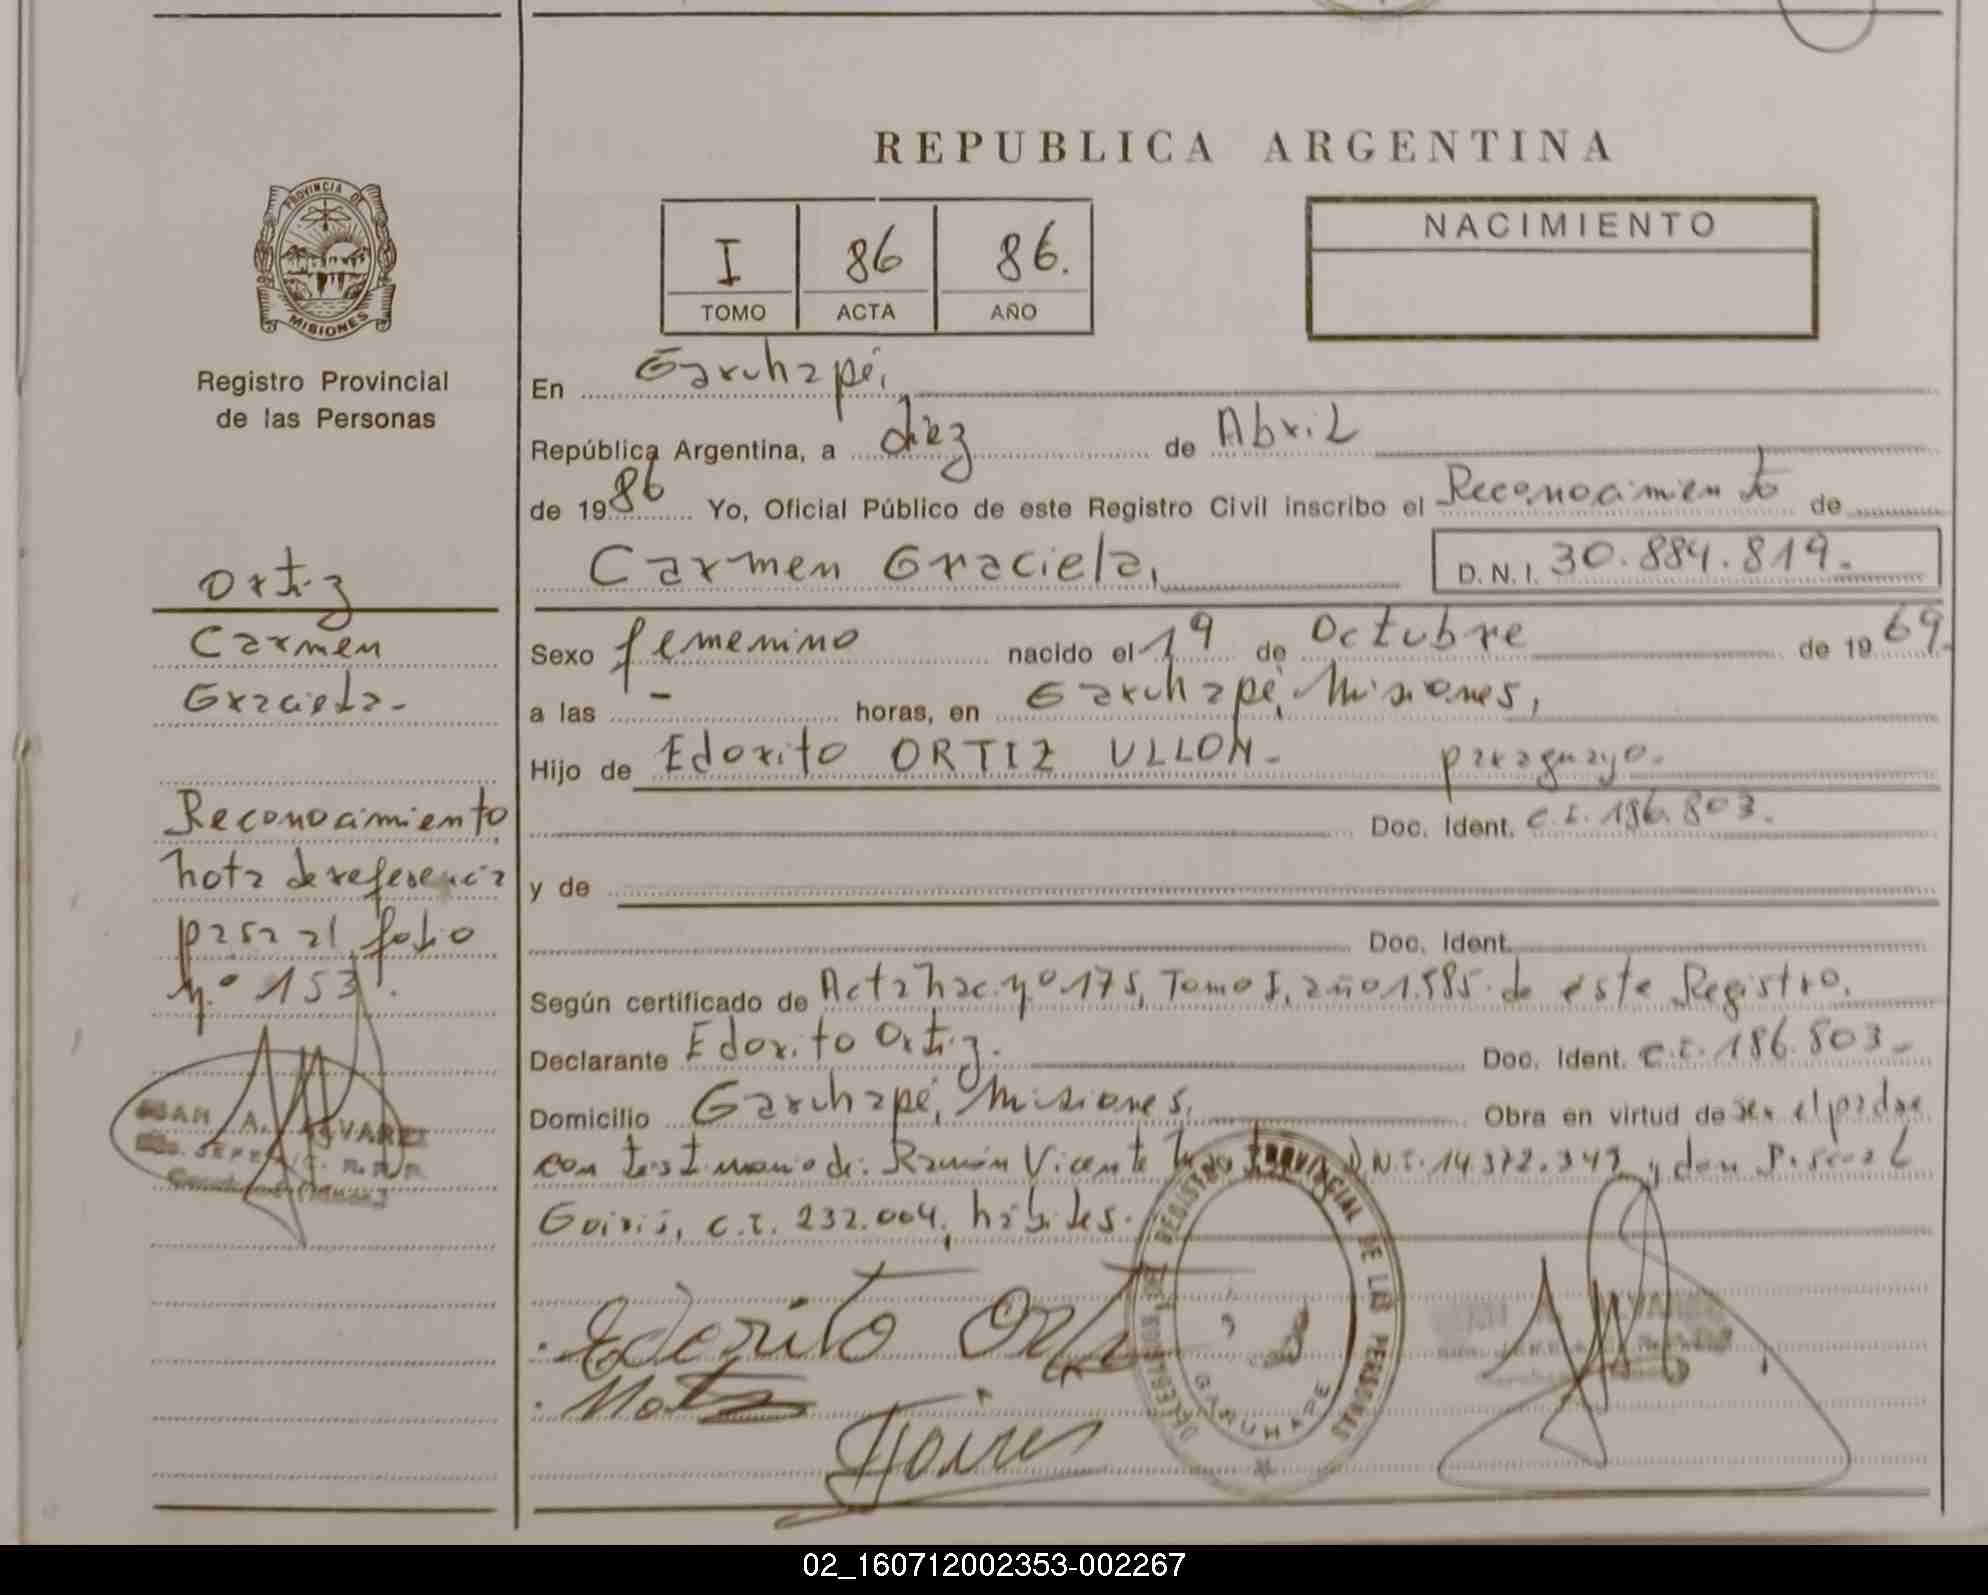 REPUBLICA ARGENTINA
PROVINCIA DE
MISIONES
Registro Provincial
de las Personas
I 86 86.
TOMO ACTA AÑO
NACIMIENTO
En Garuhapé,
República Argentina, a diez de Abril
de 1986 Yo, Oficial Público de este Registro Civil inscribo el Reconocimiento de
Carmen Graciela, D.N.I. 30.884.819.
Sexo femenino nacido el 19 de Octubre de 1969.
a las - horas, en Garuhapé, Misiones,
Hijo de Edorito ORTIZ ULLON- paraguayo.
Doc. Ident. C.I. 186.803.
y de
Doc. Ident.
Según certificado de Acta Nac. nº 175, Tomo I, año 1.985. de este Registro.
Declarante Edorito Ortiz. Doc. Ident. C.I. 186.803-
Domicilio Garuhapé, Misiones, Obra en virtud de ser el padre
con testimonio de: Ramón Vicente D.N.I. 14.372.347 y don Pascual
C.I. 232.004, hábiles.
Ortiz
Carmen
Graciela-
Reconocimiento
nota de referencia
pasa al folio
nº 153.
JUAN A. ALVAREZ
Ederito Ort
DELEGACION DEL REGISTRO PROVINCIAL DE LAS PERSONAS
GARUHAPE
02_160712002353-002267